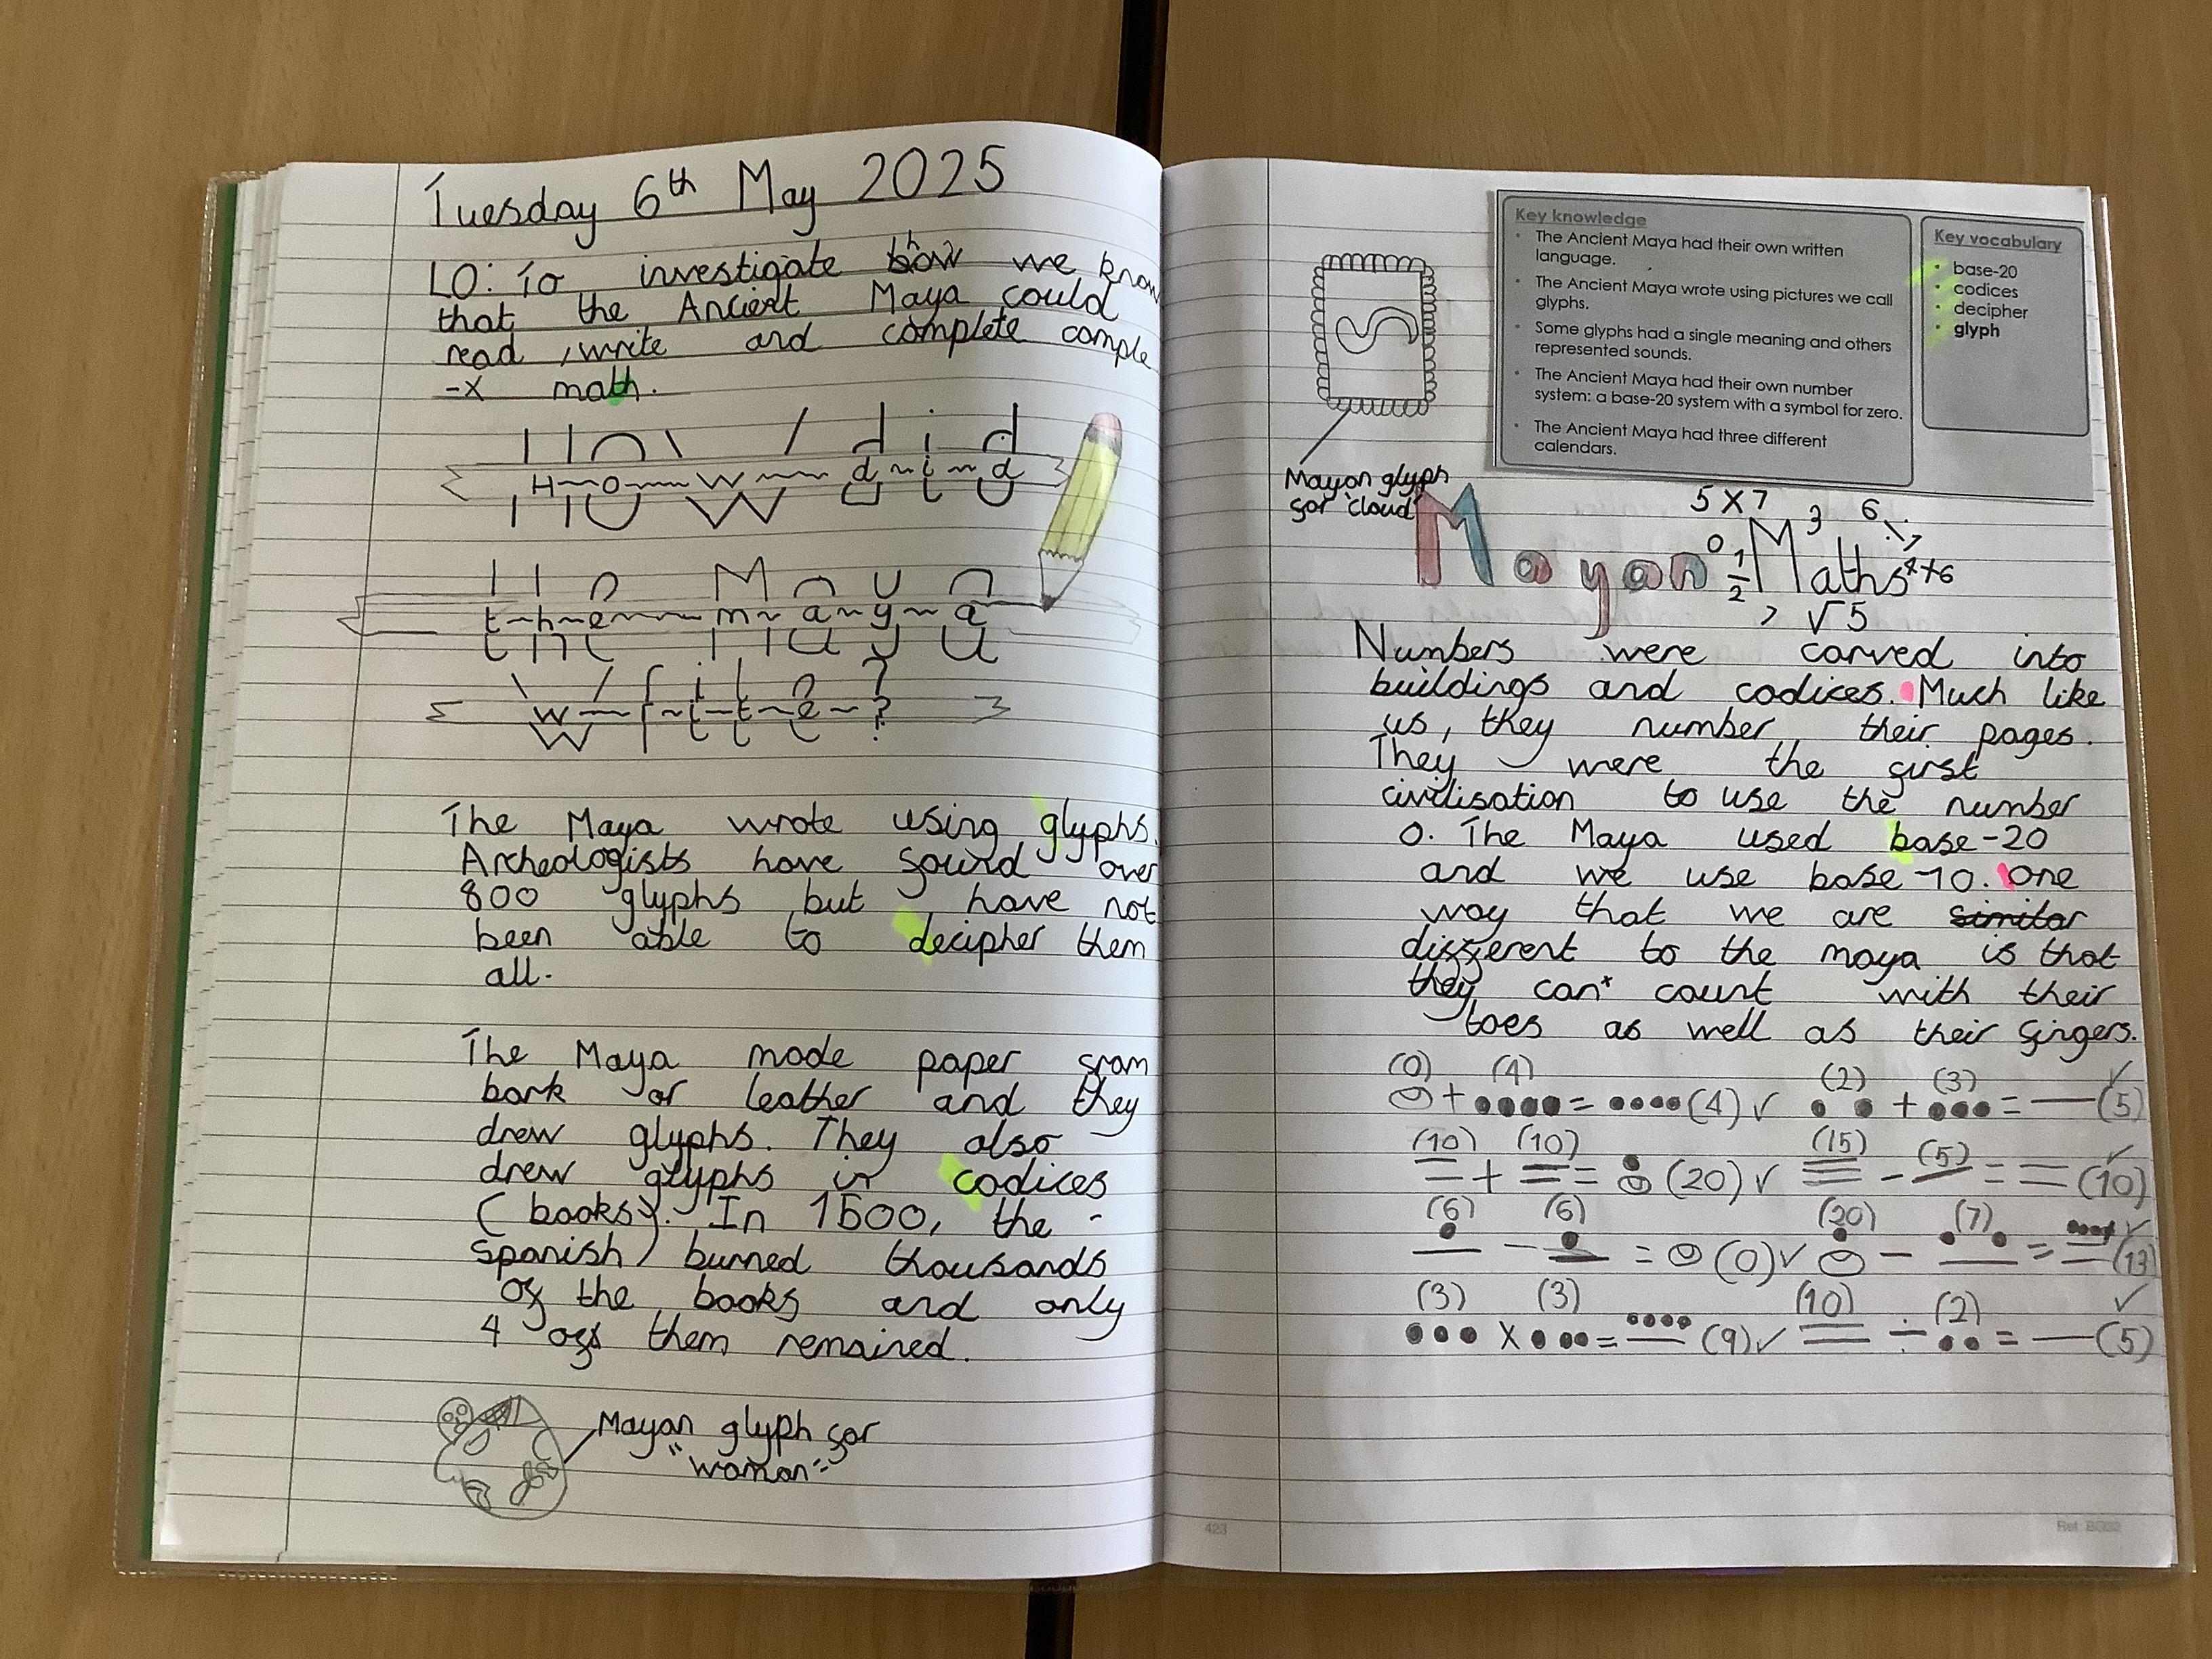 Tuesday 6th May 2025
LO: To investigate how we know
that the Ancient Maya could
read, write and complete comple
-x math.
How did
the maya
write?
The Maya wrote using glyphs.
Archeologists have found over
800 glyphs but have not
been able to decipher them
all.
The Maya made paper from
bark or leather and they
drew glyphs. They also
drew glyphs in codices
(books). In 1500, the
Spanish burned thousands
of the books and only
4 of them remained.
Mayan glyph for
"woman"
Key knowledge
• The Ancient Maya had their own written
language.
• The Ancient Maya wrote using pictures we call
glyphs.
• Some glyphs had a single meaning and others
represented sounds.
• The Ancient Maya had their own number
system: a base-20 system with a symbol for zero.
• The Ancient Maya had three different
calendars.
Key vocabulary
• base-20
• codices
• decipher
• glyph
Mayan glyph
for "cloud"
5 x 7 3 6
Mayan 0 1/2 Maths 4+6
> √5
Numbers were carved into
buildings and codices. Much like
us, they number their pages.
They were the first
civilisation to use the number
0. The Maya used base-20
and we use base-10. One
way that we are similar
different to the maya is that
they can count with their
toes as well as their fingers.
(0) (4) (2) (3)
+ = (4) ✓ + = (5) ✓
(10) (10) (15) (5)
+ = (20) ✓ - = (10) ✓
(6) (6) (20) (7)
- = (0) ✓ - = (13) ✓
(3) (3) (10) (2)
x = (9) ✓ ÷ = (5) ✓
423